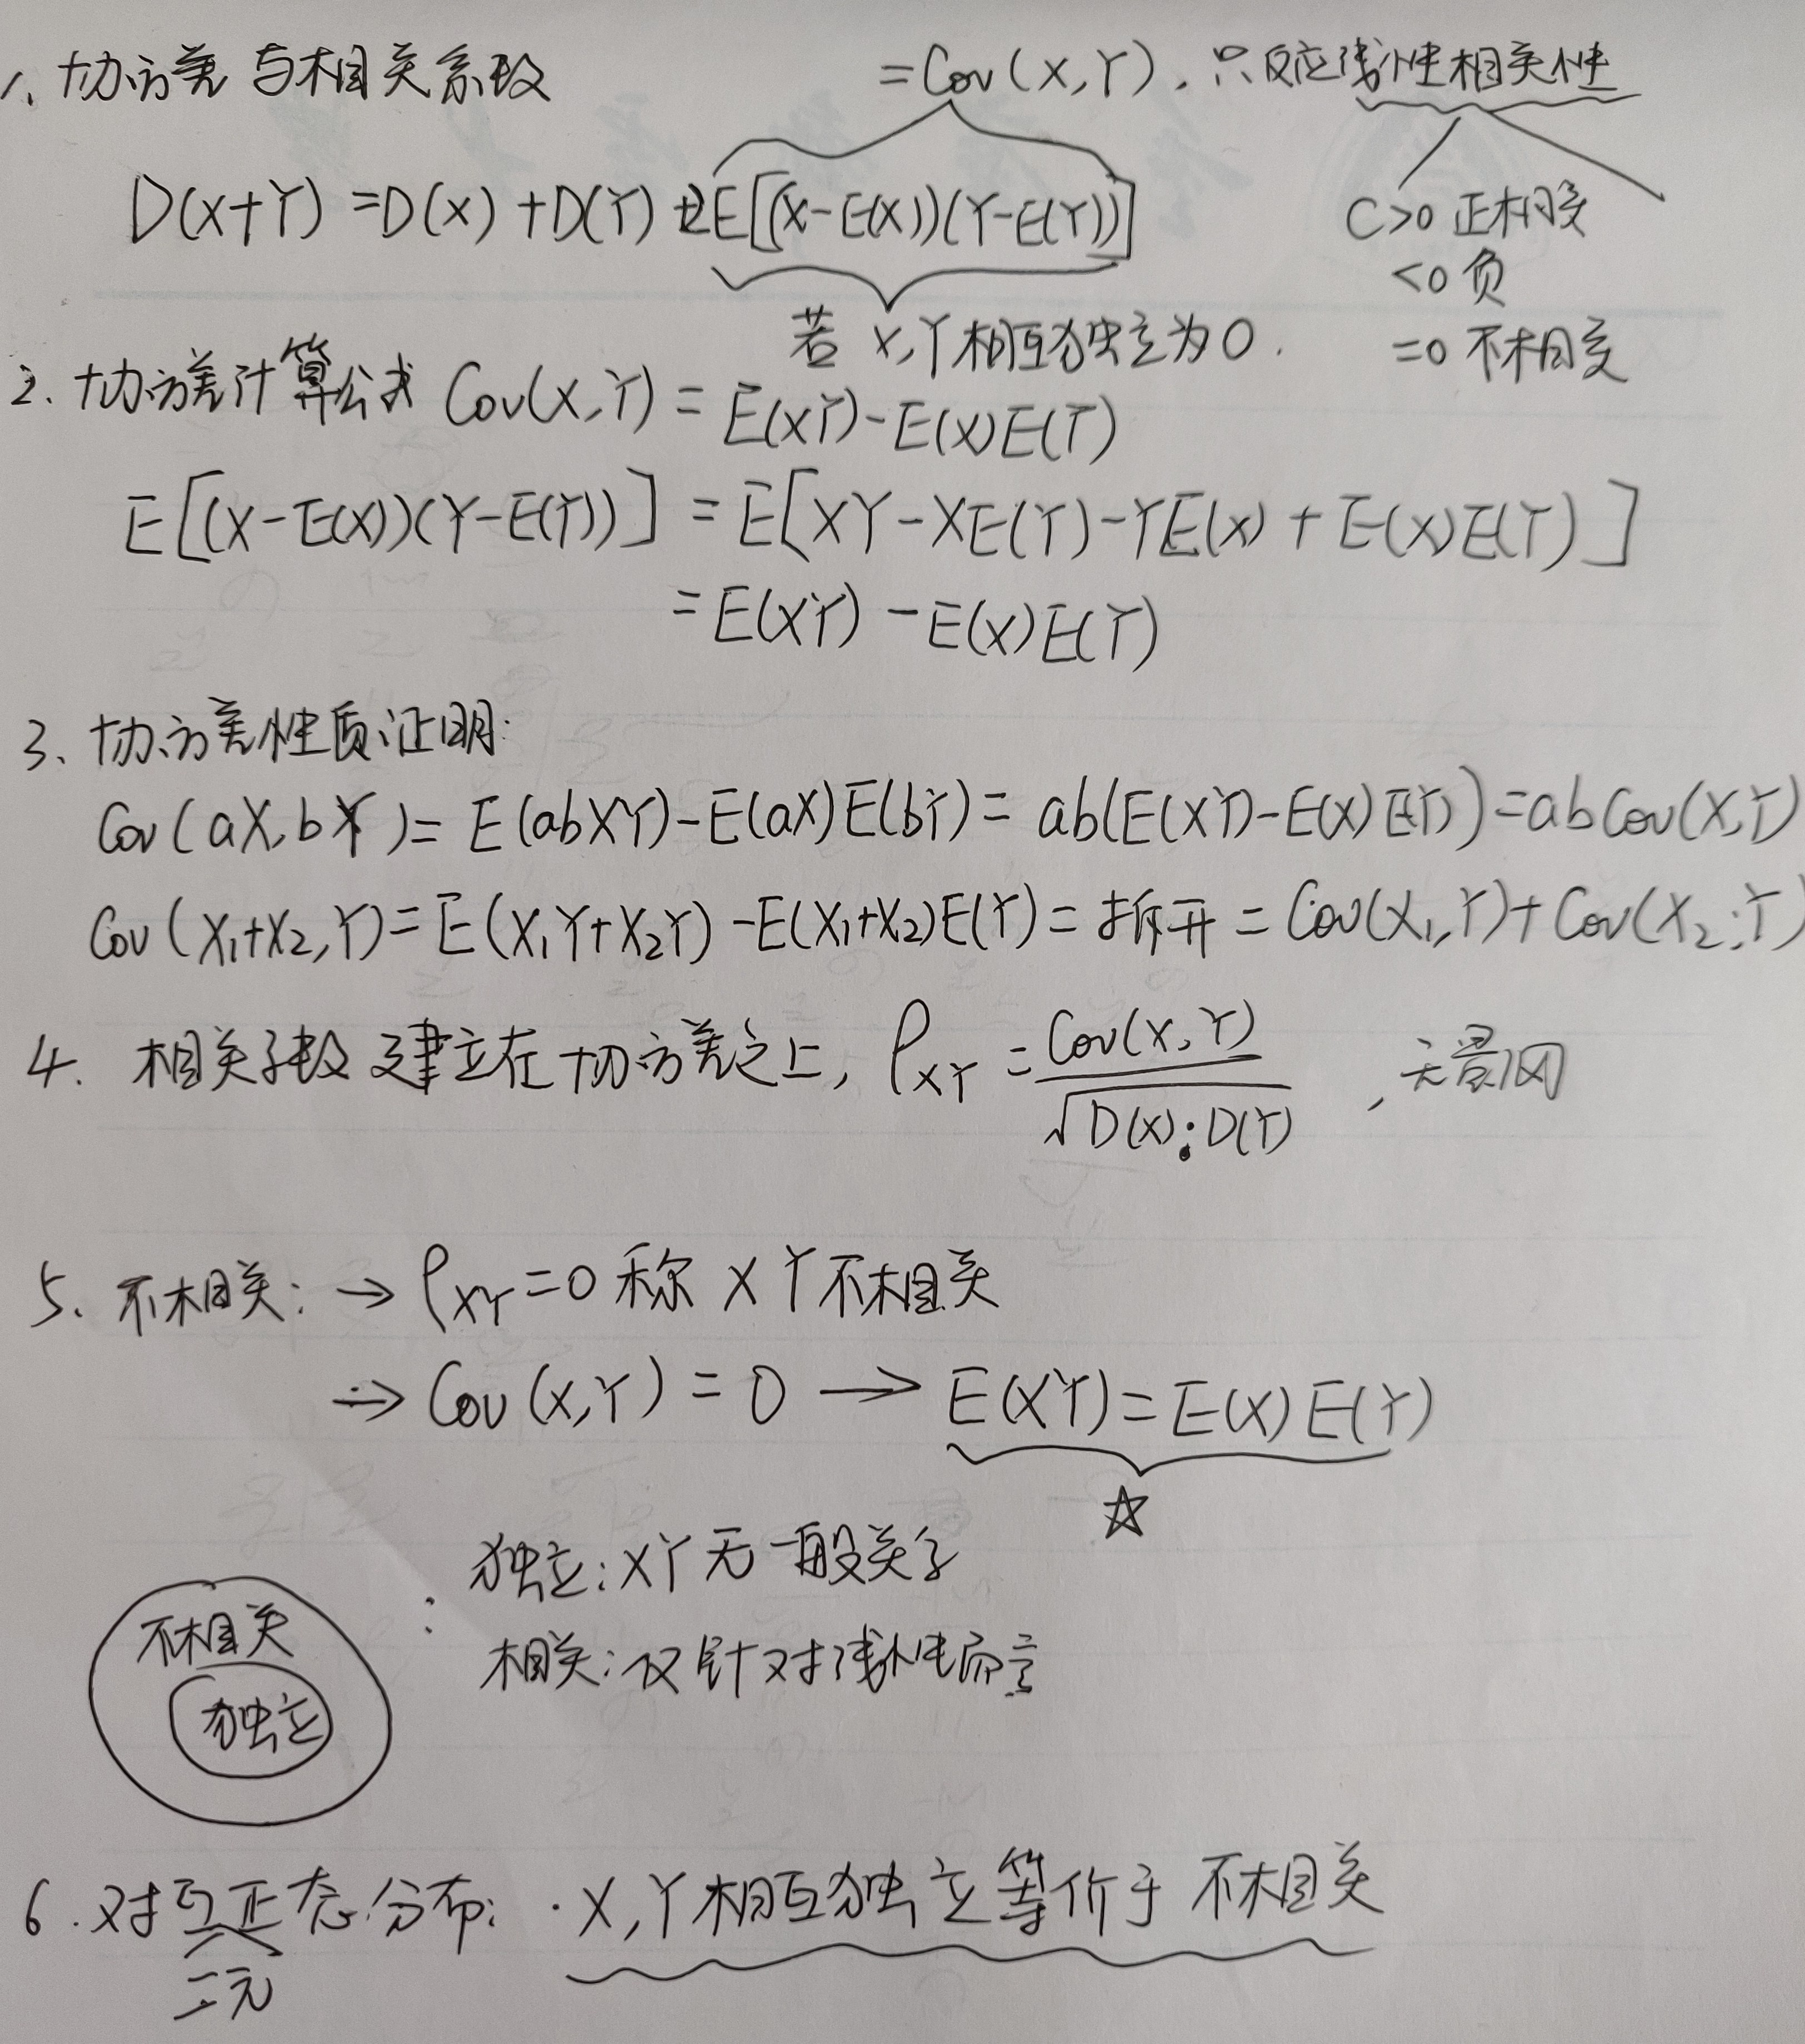 1. 协方差与相关系数
=Cov(X,Y), 只反应线性相关性
D(X+Y)=D(X)+D(Y)+2E[(X-E(X))(Y-E(Y))]
C>0 正相关
<0 负
若 X,Y相互独立为0.
=0 不相关
2. 协方差计算公式 Cov(X,Y)=E(XY)-E(X)E(Y)
E[(X-E(X))(Y-E(Y))]=E[XY-XE(Y)-YE(X)+E(X)E(Y)]
=E(XY)-E(X)E(Y)
3. 协方差性质证明:
Cov(aX,bY)=E(abXY)-E(aX)E(bY)=ab(E(XY)-E(X)E(Y))=abCov(X,Y)
Cov(X₁+X₂,Y)=E(X₁Y+X₂Y)-E(X₁+X₂)E(Y)=拆开=Cov(X₁,Y)+Cov(X₂,Y)
4. 相关系数建立在协方差之上, ρXY=Cov(X,Y)/√D(X)·D(Y), 无量纲
5. 不相关: → ρXY=0 称 X Y 不相关
→ Cov(X,Y)=0 → E(XY)=E(X)E(Y)
☆
独立: XY无一般关系
不相关
:
相关: 仅针对线性而言
独立
6. 对正态分布: ·X,Y相互独立等价于 不相关
二元